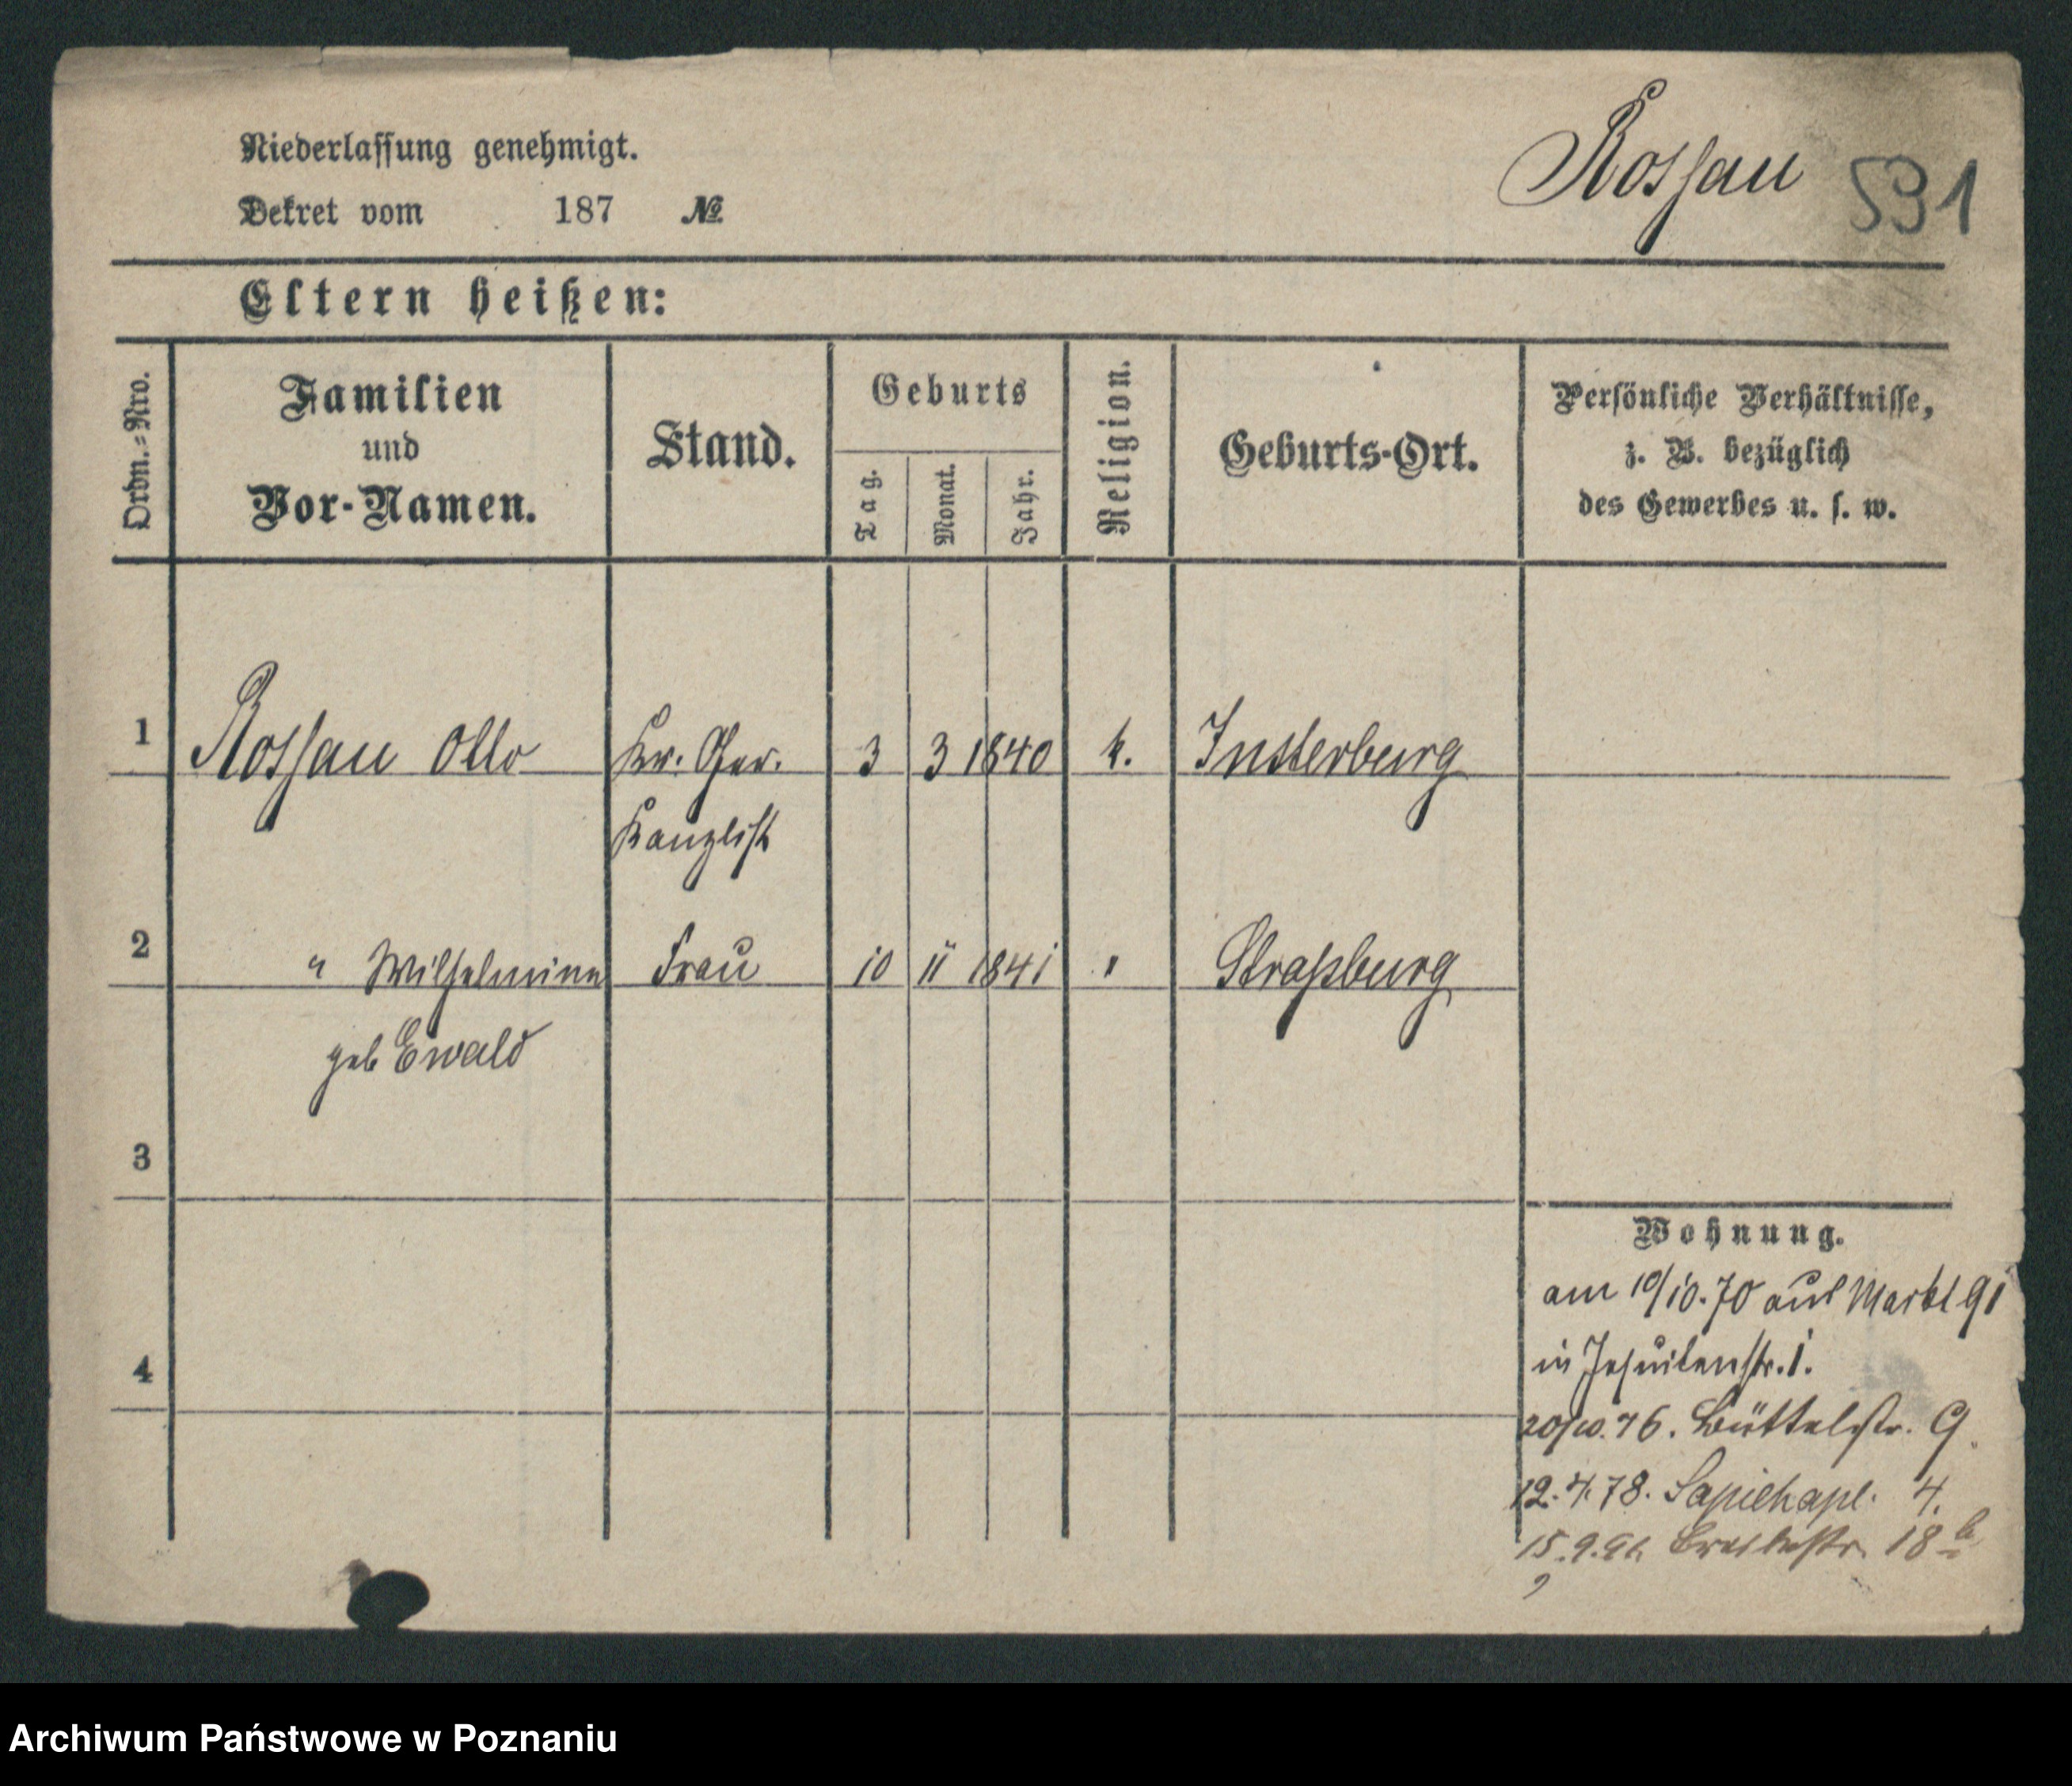 Niederlassung genehmigt.
Dekret vom 187 №
Rossau 591
Eltern heißen:
Ordn.-Nro.
Familien
und
Vor-Namen.
Stand.
Geburts
Tag.
Monat.
Jahr.
Religion.
Geburts-Ort.
Persönliche Verhältnisse,
z. B. bezüglich
des Gewerbes u. s. w.
1 Rossau Otto Kr. Ger. 3 3 1840 k. Insterburg
Kanzlist
2 " Wilhelmine Frau 10 11 1841 " Straßburg
geb Ewald
3
4
Wohnung.
am 10/10.70 aus Markt 91
in Jesuitenstr. 1.
20/10.76. Büttelstr. 9.
12.4.78. Sapiehapl. 4.
15.9. 18 b
Archiwum Państwowe w Poznaniu